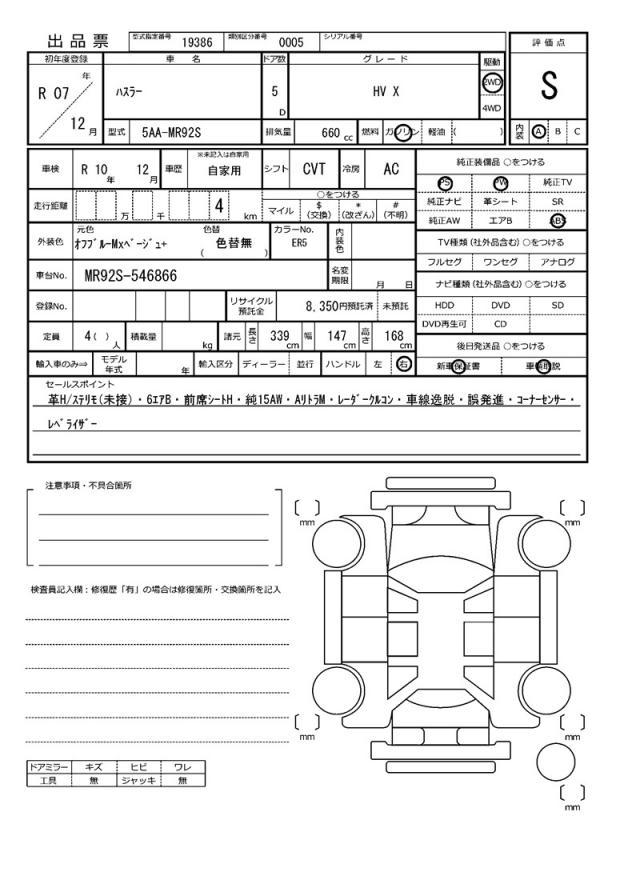 出品票 型式指定番号 19386 類別区分番号 0005 シリアル番号
評価点
S
内装 A B C
初年度登録 車名 ドア数 グレード 駆動
R 07 年 12 月 ﾊｽﾗｰ 5 D HV X 2WD 4WD
型式 5AA-MR92S 排気量 660 cc 燃料 ガソリン 軽油 ( )
車検 R 10 年 12 月 車歴 ※未記入は自家用 自家用 シフト CVT 冷房 AC
走行距離 万 千 4 km
○をつける
マイル $(交換) *(改ざん) #(不明)
外装色 元色 ｵﾌﾌﾞﾙｰMxﾍﾞｰｼﾞｭ+ 色替 ( 色替無 ) カラーNo. ER5 内装色
車台No. MR92S-546866 名変期限 月 日
登録No. リサイクル預託金 8,350円預託済 未預託
定員 4( ) 人 積載量 kg 諸元 長さ 339 cm 幅 147 cm 高さ 168 cm
輸入車のみ⇒ モデル年式 年 輸入区分 ディーラー 並行 ハンドル 左 右
純正装備品 ○をつける
PS PW 純正TV
純正ナビ 革シート SR
純正AW エアB ABS
TV種類(社外品含む)○をつける
フルセグ ワンセグ アナログ
ナビ種類(社外品含む)○をつける
HDD DVD SD
DVD再生可 CD
後日発送品 ○をつける
新車保証書 車輌取説
セールスポイント
革H/ｽﾃﾘﾓ(未接)・6ｴｱB・前席ｼｰﾄH・純15AW・AﾘﾄﾗM・ﾚｰﾀﾞｰｸﾙｺﾝ・車線逸脱・誤発進・ｺｰﾅｰｾﾝｻｰ・
ﾚﾍﾞﾗｲｻﾞｰ
注意事項・不具合箇所
検査員記入欄：修復歴「有」の場合は修復箇所・交換箇所を記入
ドアミラー キズ ヒビ ワレ
工具 無 ジャッキ 無
mm
mm
mm
mm
mm